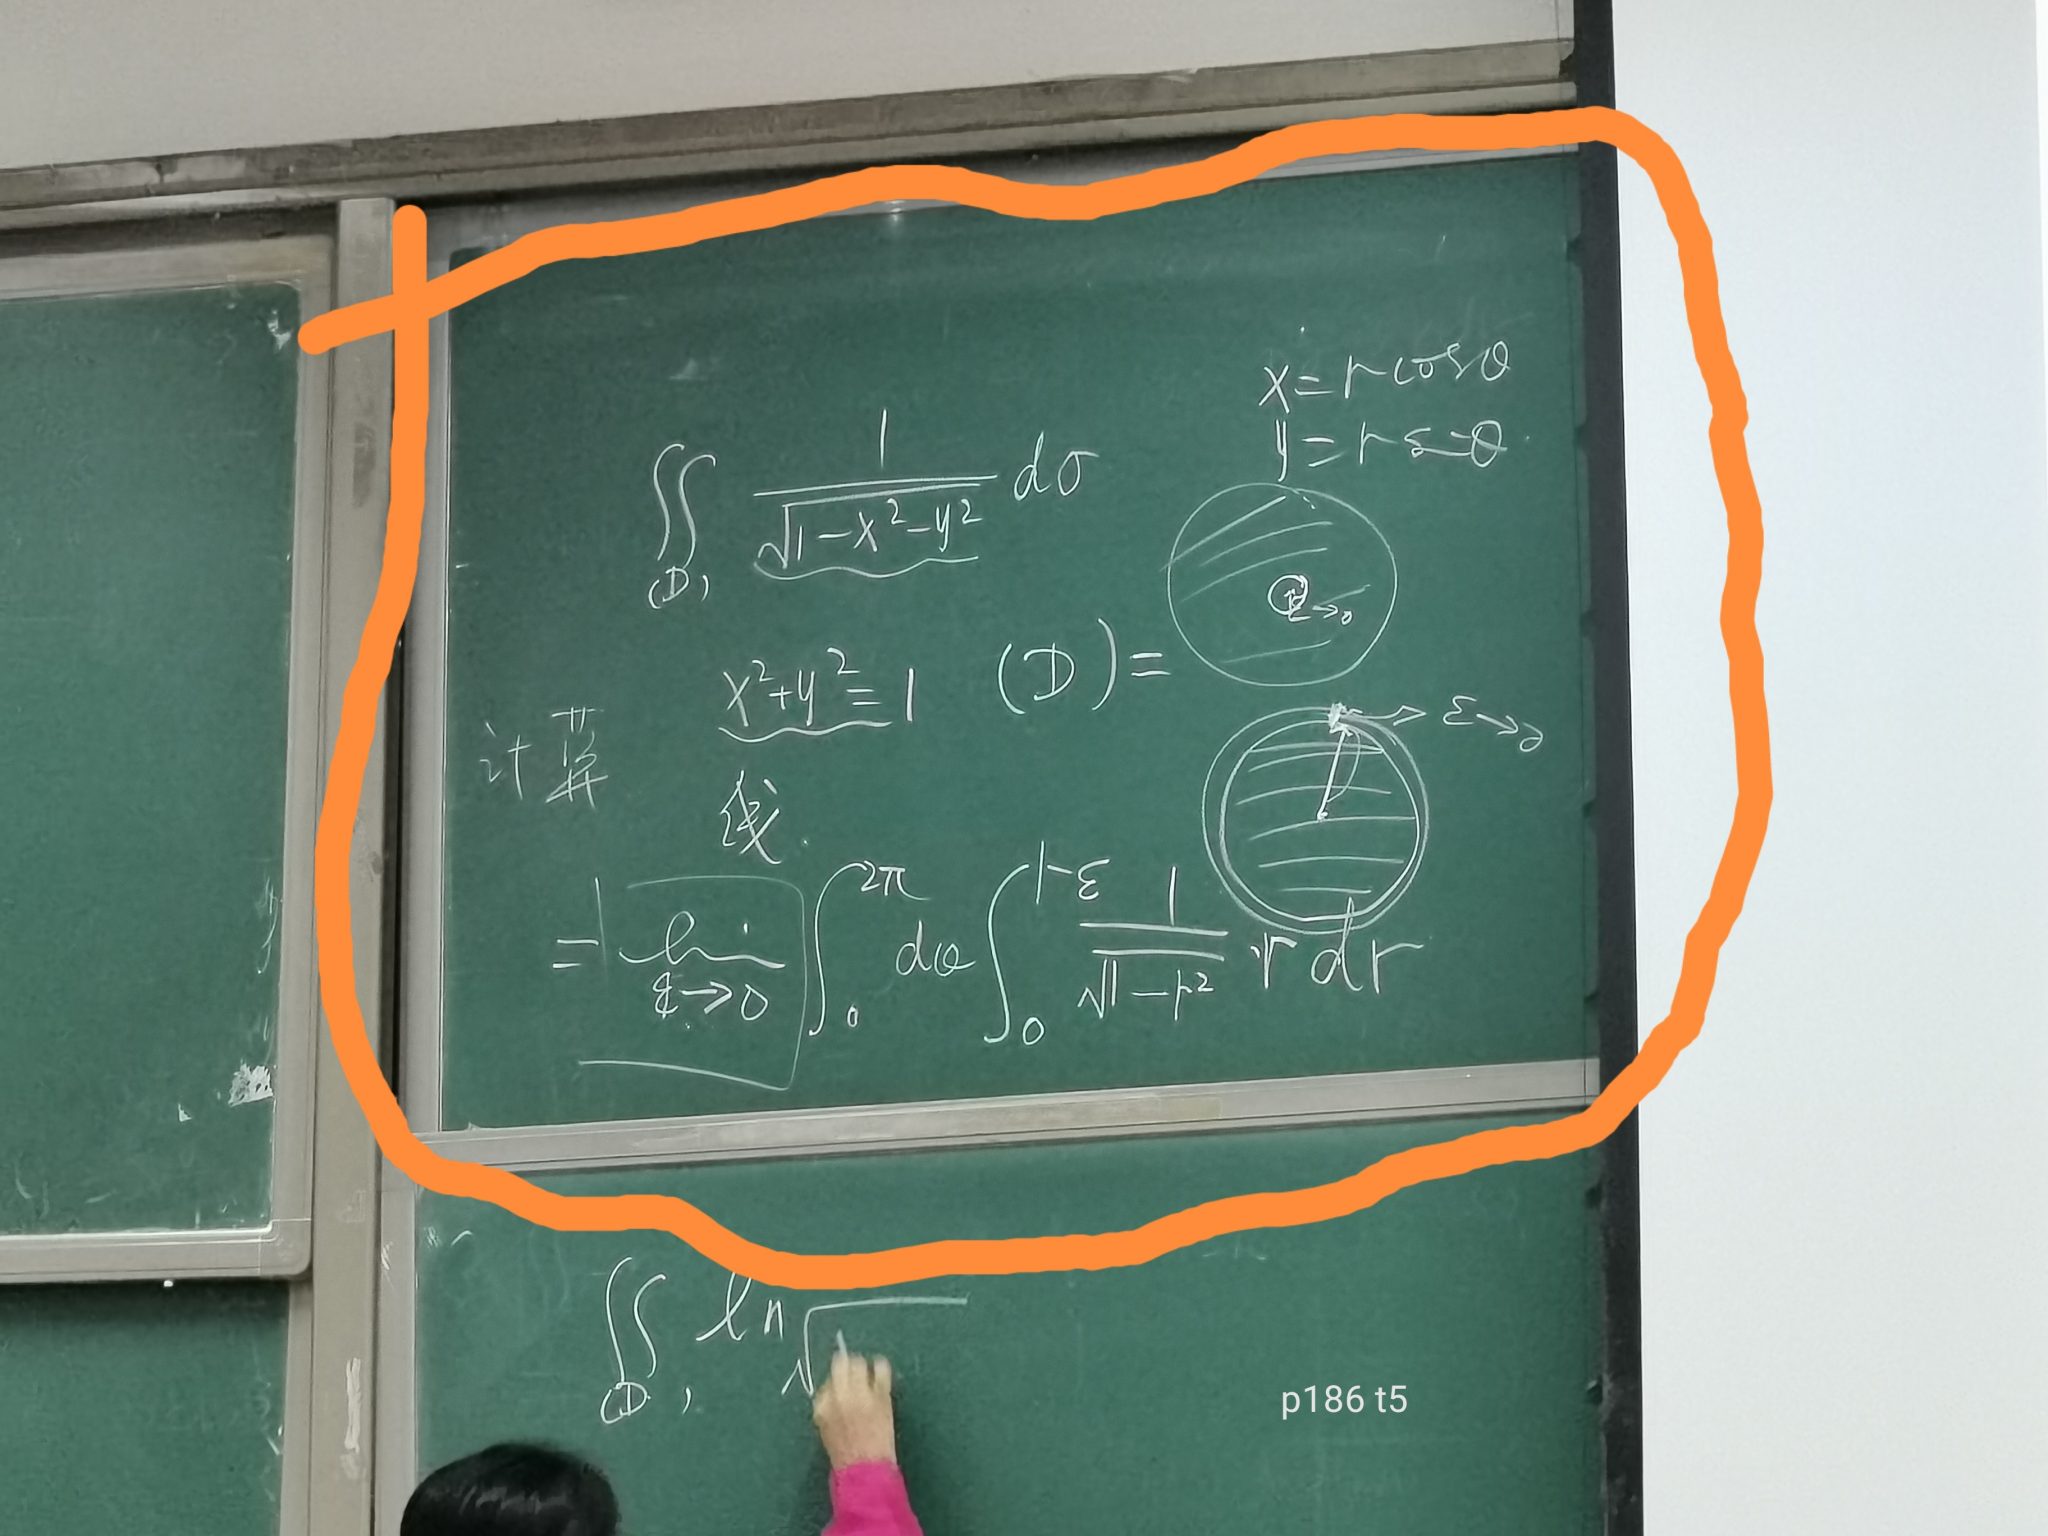 x=rcosθ
y=rsinθ
∬(D) 1/√(1-x²-y²) dσ
ε→0
x²+y²=1 (D)=
ε→0
计算
线
=lim ε→0 ∫₀^2π dθ ∫₀^1-ε 1/√(1-r²) r dr
∬(D) ln√
p186 t5